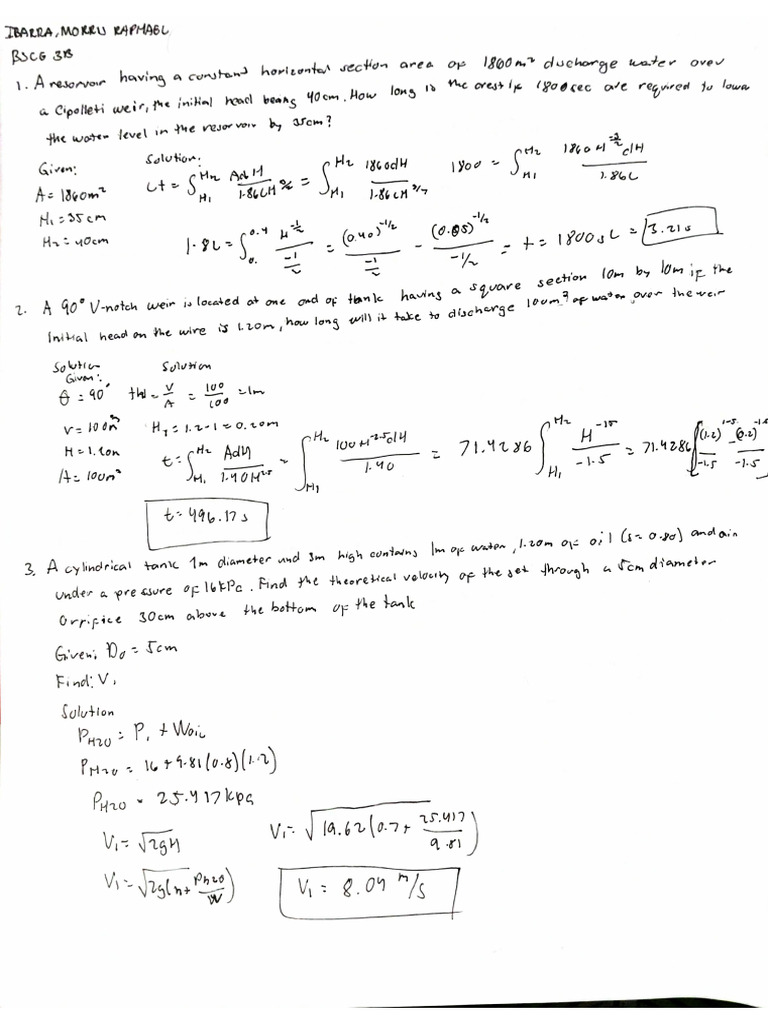 IBARRA, MORRU RAPHAEL
BSCE 3B
1. A reservoir having a constand horizontal section area of 1860m² duscharge water over
a Cipolleti weir, the initial head being 40cm. How long is the crest if 1800sec are required to lowa
the water level in the reservoir by 35cm?
Given:
A = 1860m²
H₁ = 35cm
H₂ = 40cm
Solution:
t = ∫H₁^H₂ AdH / 1.86LH^3/2 = ∫H₁^H₂ 1860dH / 1.86LH^3/2
1800 = ∫H₁^H₂ 1860H^-3/2 dH / 1.86L
1.8L = ∫0.^0.4 H^-1/2 / -1/2 = (0.40)^-1/2 / -1/2 - (0.05)^-1/2 / -1/2 = t = 1800sL = 3.21s
2. A 90° V-notch weir is located at one end of tank having a square section 10m by 10m if the
Initial head on the wire is 1.20m, how long will it take to discharge 100m³ of water over the weir
Solution
Given:
θ = 90°
V = 100m³
H = 1.20m
A = 100m²
Solution
= V/A = 100/100 = 1m
H₁ = 1.2 - 1 = 0.20m
t = ∫H₁^H₂ AdH / 1.40H^2.5 = ∫H₁^H₂ 100H^-2.5 dH / 1.40 = 71.4286 ∫H₁^H₂ H^-1.5 / -1.5 = 71.4286 [(1.2)^-1.5 / -1.5 - (0.2)^-1.5 / -1.5
t = 496.17s
3. A cylindrical tank 1m diameter und 3m high contains 1m of water, 1.20m of oil (s = 0.80) and air
under a pressure of 16kPc. Find the theoretical velocity of the jet through a 5cm diameter
Orrifice 30cm above the bottom of the tank
Given: D₀ = 5cm
Find: V₁
Solution
PH20 = P₁ + Woil
PH20 = 16 + 9.81(0.8)(1.2)
PH20 = 25.417kpa
V₁ = √2gH
V₁ = √2g(h + PH20/W)
V₁ = √19.62(0.7 + 25.417/9.81)
V₁ = 8.04 m/s